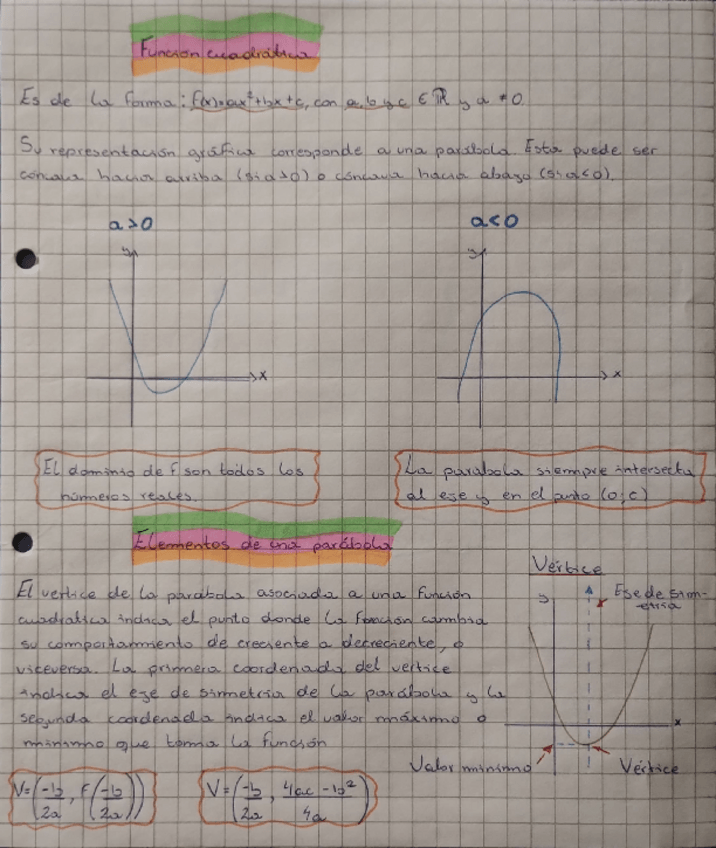 Función cuadrática
Es de la forma: f(x)=ax²+bx+c, con a, b y c ∈ ℝ y a ≠ 0
Su representación gráfica corresponde a una parábola. Esta puede ser
cóncava hacia arriba (si a>0) o cóncava hacia abajo (si a<0).
a>0
a<0
y
y
x
x
El dominio de f son todos los
números reales.
La parabola siempre intersecta
al eje y en el punto (0;c)
Elementos de una parábola
El vertice de la parabola asociada a una función
cuadratica indica el punto donde la función cambia
su comportamiento de creciente a decreciente, o
viceversa. La primera coordenada del vertice
indica el eje de simetria de la parábola y la
segunda coordenada indica el valor máximo o
minimo que toma la función
Vértice
y
Eje de sim-
etria
x
Valor minimo
Vértice
V=(-b/2a, f(-b/2a))
V=(-b/2a, 4ac-b²/4a)